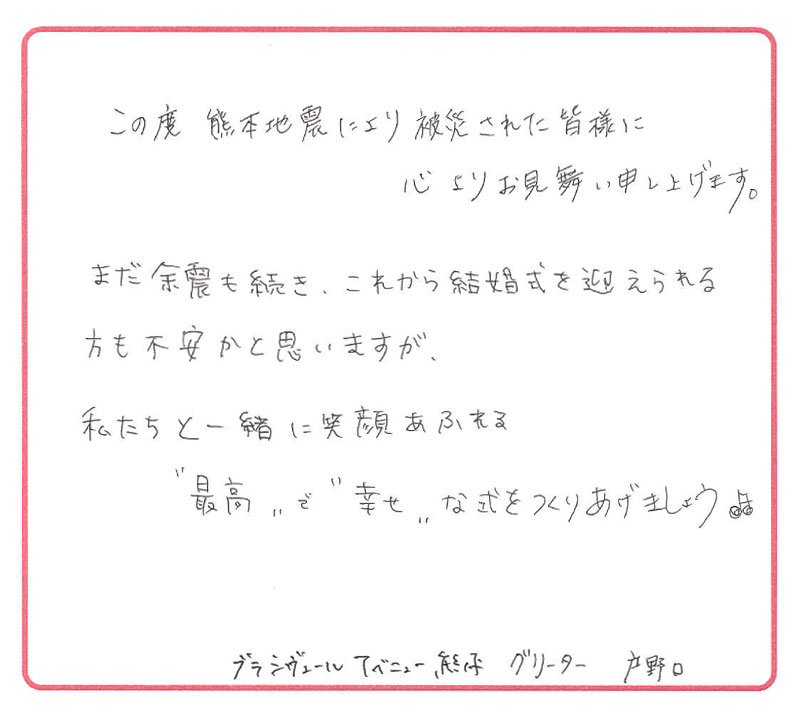 この度 熊本地震により被災された皆様に
心よりお見舞い申し上げます。
まだ余震も続き、これから結婚式を迎えられる
方も不安かと思いますが、
私たちと一緒に笑顔あふれる
"最高„で"幸せ„な式をつくりあげましょう♫
ブランヴェールアベニュー熊本 グリーター 戸野口